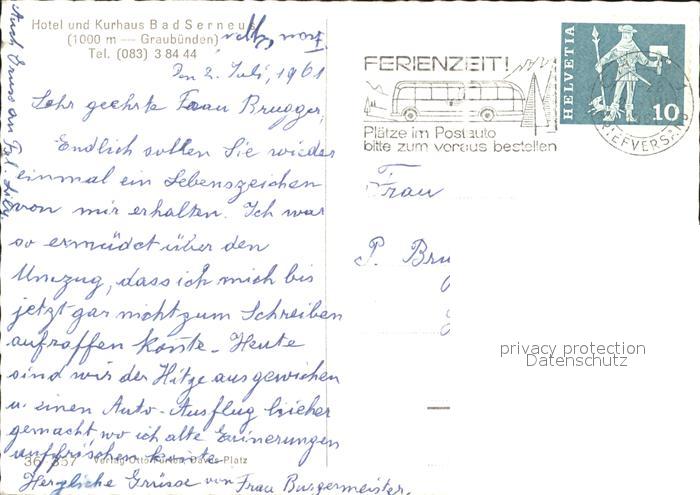 Hotel und Kurhaus Bad Serneus
(1000 m — Graubünden)
Tel. (083) 3 84 44
Den 2. Juli, 1961
Sehr geehrte Frau Brugger,
Endlich sollen Sie wieder
einmal ein Lebenszeichen
von mir erhalten. Ich war
so ermüdet über den
Umzug, dass ich mich bis
jetzt gar nicht zum Schreiben
aufraffen konte. Heute
sind wir der Hitze ausgewichen
u. einen Auto-Ausflug hieher
gemacht, wo ich alte Erinerungen
auffrischen konte.
Herzliche Grüsse von Frau Burgermeister.
Auch Gruss an Frl.
36 857 Verlag Otto Furter, Davos-Platz
FERIENZEIT!
Plätze im Postauto
bitte zum voraus bestellen
HELVETIA
10
BRIEFVERSAND
Frau
P. Bru
privacy protection
Datenschutz